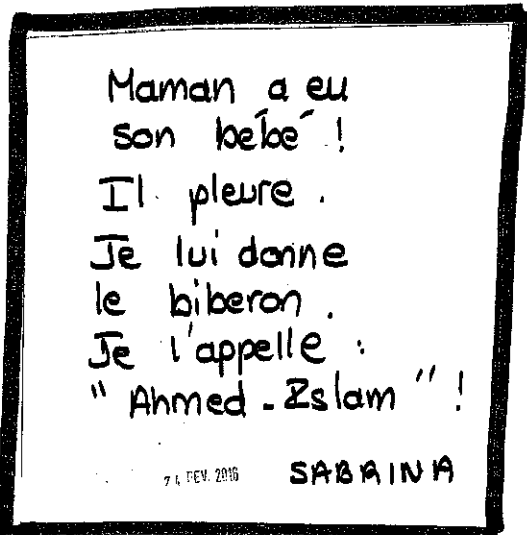 Maman a eu
son bébé !
Il pleure .
Je lui donne
le biberon .
Je l'appelle :
" Ahmed - Islam " !
FEV. 2016 SABRINA